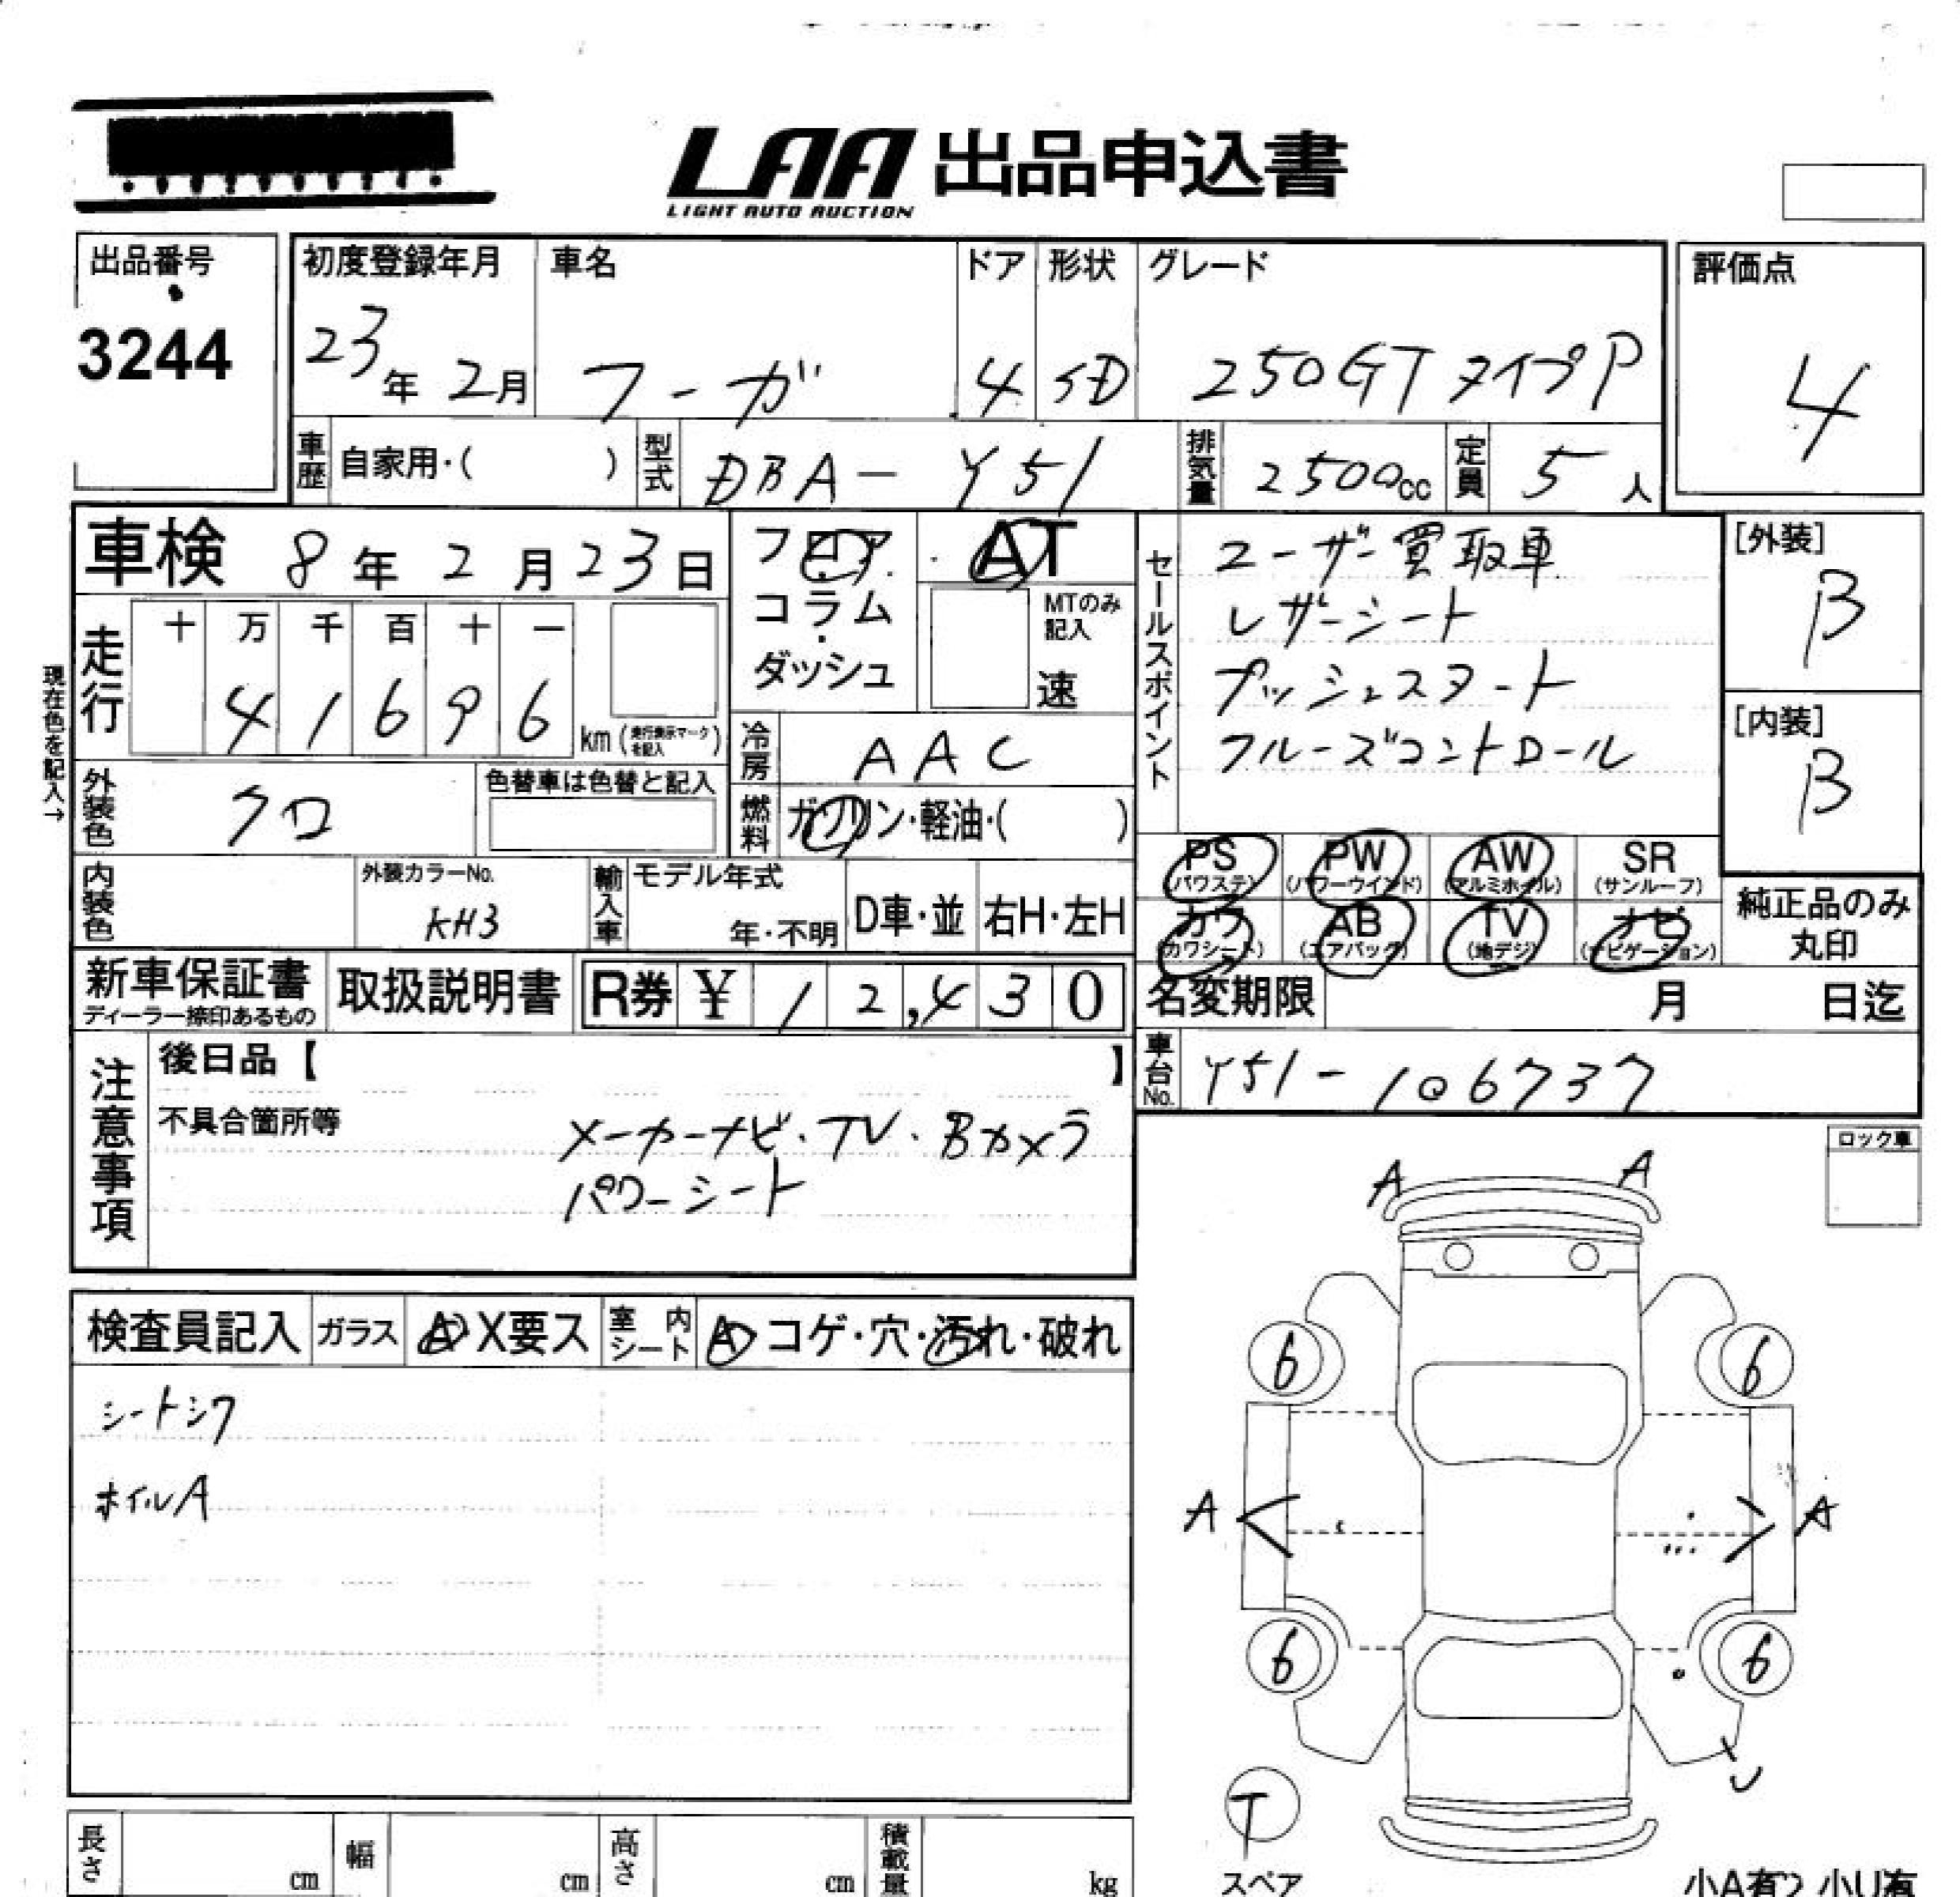 LAA 出品申込書
LIGHT AUTO AUCTION
出品番号
3244
初度登録年月
23年 2月
車名
フーガ
ドア
4
形状
SD
グレード
250GT タイプP
評価点
4
車歴 自家用・( )
型式 DBA-Y51
排気量 2500cc
定員 5人
車検 8年 2月 23日
フロア・コラム・ダッシュ
AT
MTのみ記入
速
セールスポイント
ユーザー買取車
レザーシート
プッシュスタート
クルーズコントロール
[外装]
B
[内装]
B
現在色を記入→
走行
十 万 千 百 十 一
4 1 6 9 6 km (走行表示マークを記入)
冷房 AAC
外装色 クロ
色替車は色替と記入
燃料 ガソリン・軽油・( )
PS (パワステ) PW (パワーウインド) AW (アルミホイル) SR (サンルーフ)
カワ (カワシート) AB (エアバッグ) TV (地デジ) ナビ (ナビゲーション)
純正品のみ丸印
内装色
外装カラーNo.
KH3
輸入車 モデル年式
年・不明
D車・並
右H・左H
新車保証書
ディーラー捺印あるもの
取扱説明書
R券 ¥ 12,430
名変期限 月 日迄
車台No. Y51-106737
注意事項
後日品【 】
不具合箇所等
メーカーナビ・TV・Bカメラ
パワーシート
ロック車
A A
検査員記入 ガラス A X要ス 室内シート A コゲ・穴・汚れ・破れ
シートシワ
ホイルA
6 6
A A
6 6
U
T
スペア
長さ cm 幅 cm 高さ cm 積載量 kg
小A有 小U有